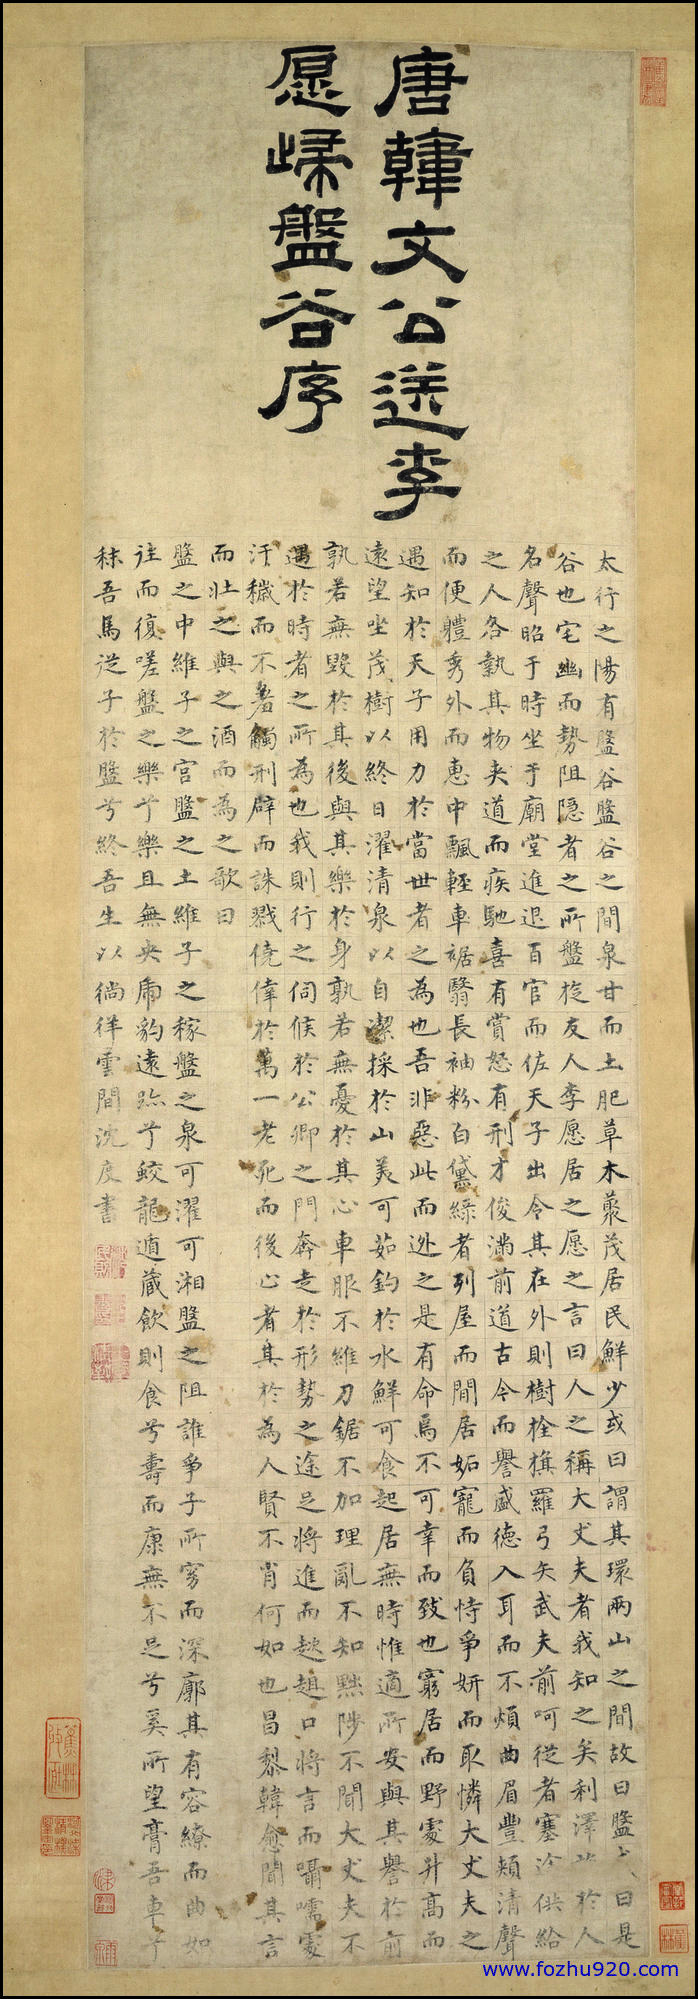 唐韓文公送李
愿歸盤谷序
太行之陽有盤谷盤谷之間泉甘而土肥草木藂茂居民鮮少或曰謂其環兩山之間故曰盤 曰是
谷也宅幽而勢阻隱者之所盤旋友人李愿居之愿之言曰人之稱大丈夫者我知之矣利澤 於人
名聲昭于時坐于廟堂進退百官而佐天子出令其在外則樹栓旗羅弓矢武夫前呵從者塞途供給
之人各執其物夾道而疾馳喜有賞怒有刑才俊滿前道古今而譽盛德入耳而不煩曲眉豐頰清聲
而便體秀外而惠中飄輕車裾翳長袖粉白黛綠者列屋而閒居妬寵而負恃爭妍而取憐大丈夫之
遇知於天子用力於當世者之為也吾非惡此而逃之是有命焉不可幸而致也窮居而野處升高而
遠望坐茂樹以終日濯清泉以自潔採於山美可茹釣於水鮮可食起居無時惟適所安與其譽於前
孰若無毀於其後與其樂於身孰若無憂於其心車服不維刀鋸不加理亂不知黜陟不聞大丈夫不
遇於時者之所為也我則行之伺候於公卿之門奔走於形勢之途足將進而趑趄口將言而囁嚅處
汙穢而不羞觸刑辟而誅戮僥倖於萬一老死而後止者其於為人賢不肖何如也昌黎韓愈聞其言
而壯之與之酒而為之歌曰
盤之中維子之宮盤之土維子之稼盤之泉可濯可湘盤之阻誰爭子所窈而深廓其有容繚而曲如
往而復嗟盤之樂兮樂且無央虎豹遠跡兮鮫龍遁藏飲則食兮壽而康無不足兮奚所望膏吾車兮
秣吾馬從子於盤兮終吾生以徜徉雲間沈度書
蕉林
www.fozhu920.com